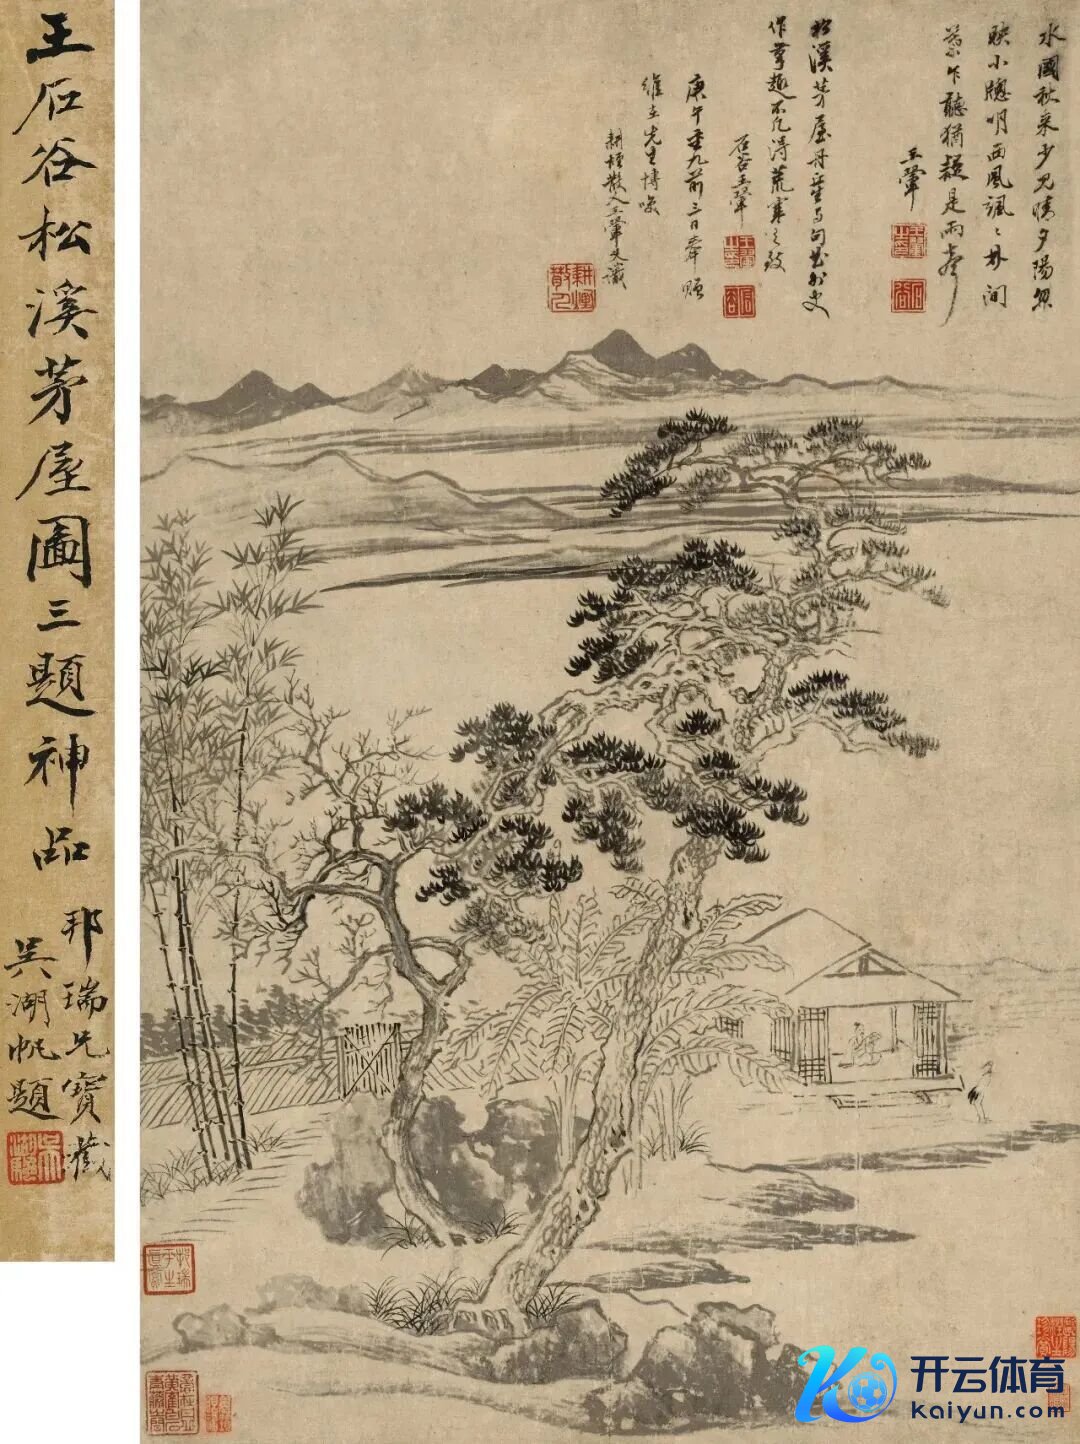 王石谷松溪茅屋圖三題神品
邦瑞兄寶藏
吴湖帆題
水國秋來少見晴夕陽忽
映小牕明西風颯〻林間
葉乍聽猶疑是雨聲
王翬
松溪茅屋丹丘生与句曲外史
作筆趣不凡得荒寒之致
石谷王翬
庚午重九前三日奉贈
維立先生博咲
耕煙散人王翬又識
耕煙散人
开云体育
kaiyun.com